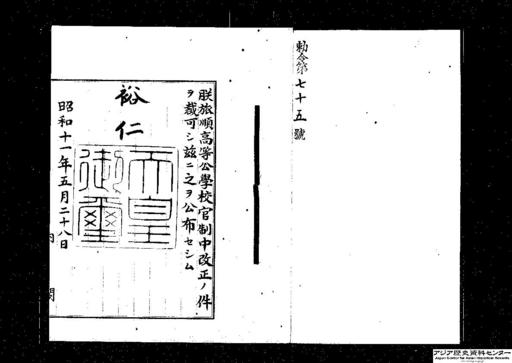 勅令第七十五號
朕旅順高等公學校官制中改正ノ件
ヲ裁可シ茲ニ之ヲ公布セシム
裕仁
天皇
御璽
昭和十一年五月二十八日
内閣
アジア歴史資料センター
Japan Center for Asian Historical Records